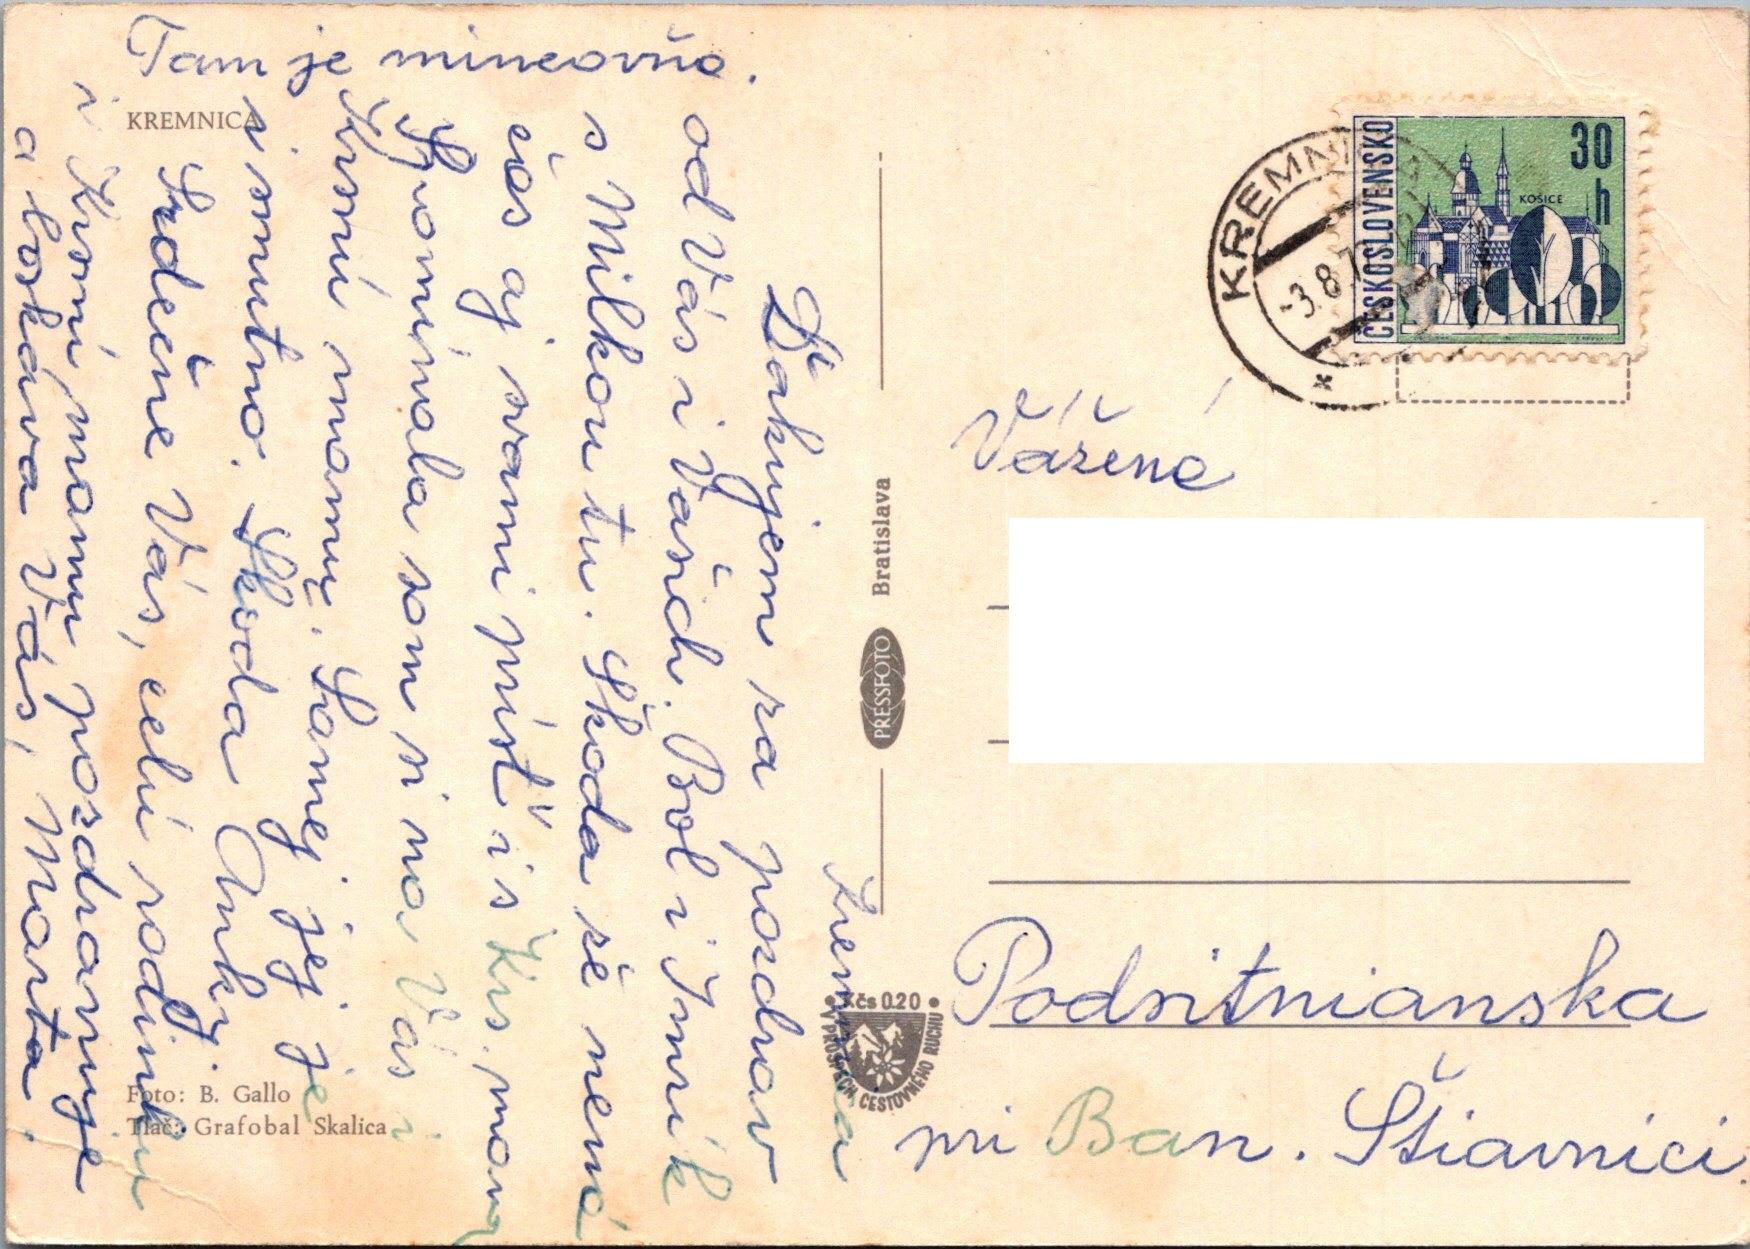 Tam je mincovňa.
KREMNICA
Kremnica
Ďakujem za pozdrav
od Vás i Vašich. Bol i Imrík
s Milkou tu. Škoda že nemá
čas aj svami prísť i s Krs. mamy
Spomínala som si na Vás i
Krsnú mamu. Samej jej je
smutno. Škoda Anky.
Srdečne Vás, celú rodinku
i Krsnú mamu pozdravuje
a boskáva Vás, Marta.
Foto: B. Gallo
Tlač: Grafobal Skalica
PRESSFOTO Bratislava
Kčs 0.20
V PROSPECH CESTOVNÉHO RUCHU
KREMNICA
-3.8.7
ČESKOSLOVENSKO
30 h
KOŠICE
Vážená
Podsitnianska
pri Ban. Štiavnici.